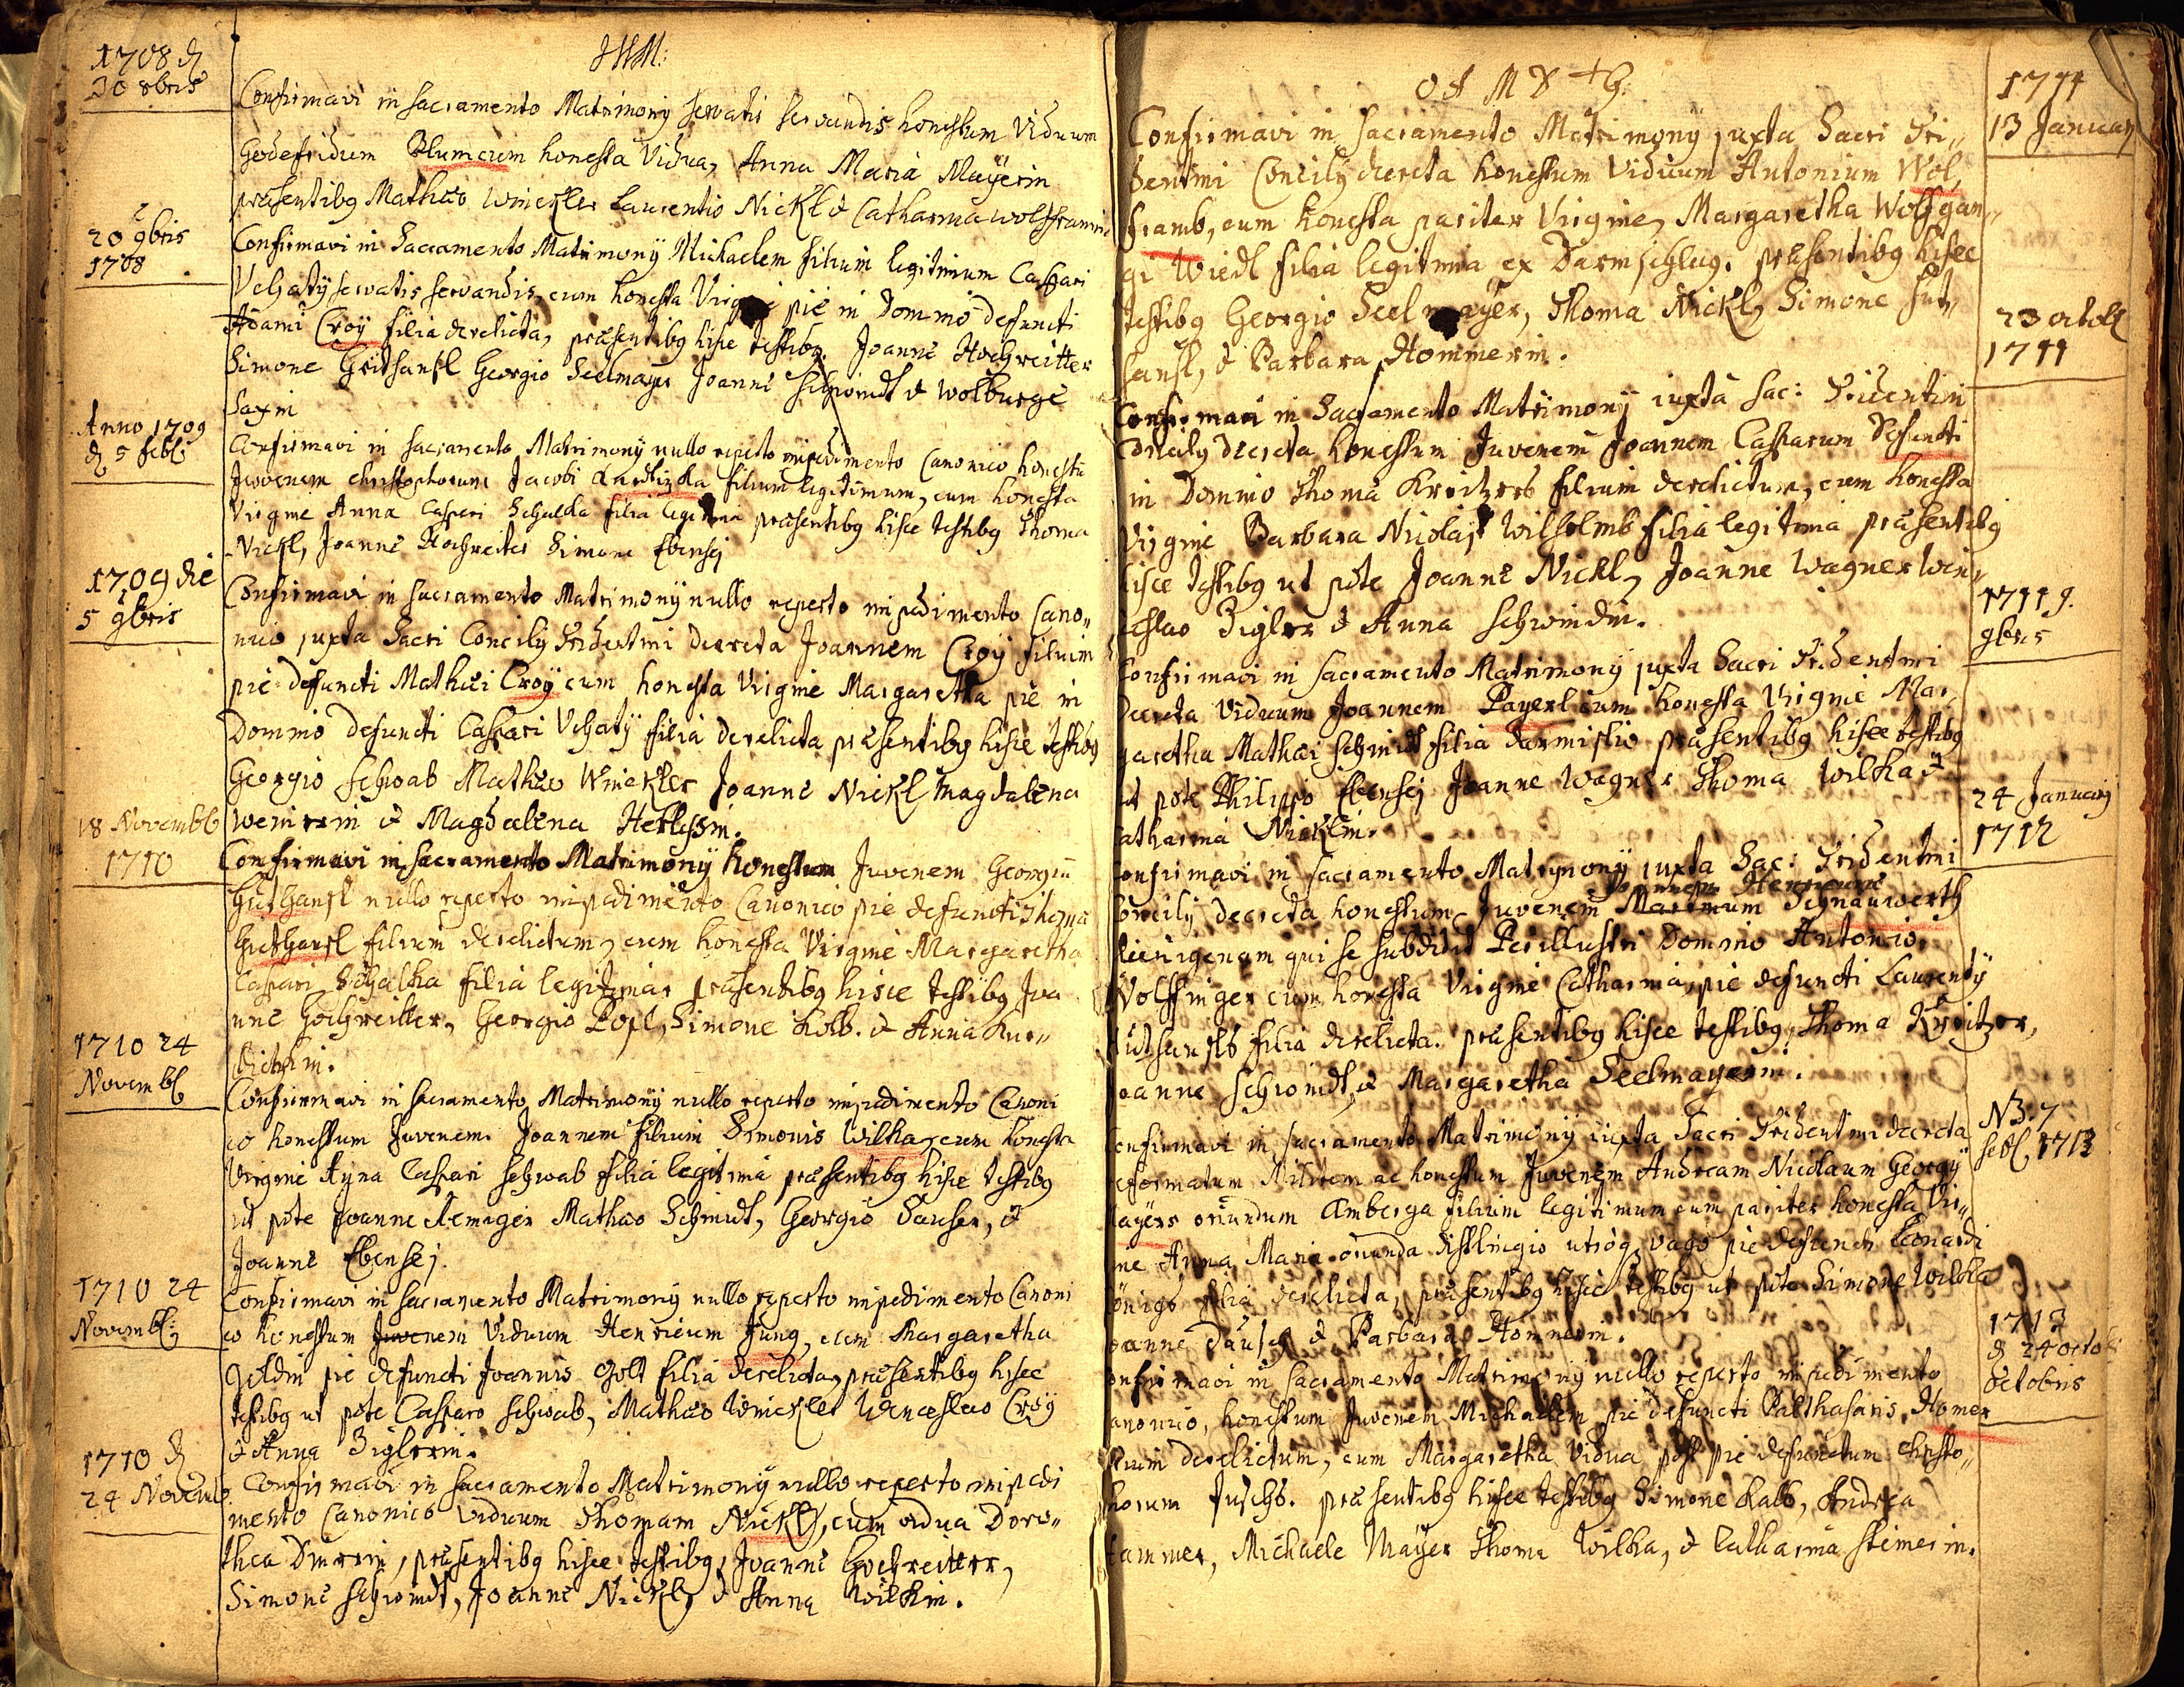 1708 d
30 8bris
JHM:
Confirmavi in sacramento Matrimonÿ servatis servandis honestum Viduum
Godefridum Blum cum honesta Vidua, Anna Maria Maÿerin
præsentibg Mathæo Winckler Laurentio Nickl & Catharina Wolfframin
20 9bris
1708
Confirmavi in Sacramento Matrimonÿ Michaelem filium legitimum Caspari
servatis servandis, cum honesta pie in Domino defuncti
Adami Croÿ filia derelicta, præsentibg hisce testibg. Joanne Hochreitter
Simone Georgio Seelmayer Joanne Schwindt & Wolburge
Saxin
Anno 1709
d 5 febl:
Confirmavi in sacramento Matrimonÿ nullo reperto impedimento Canonico honestu
Juvenem Christophorum Jacobi filium legitimum, cum honesta
Virgine Anna Caspari Schalka filia legitima præsentibg hisce testibg Thoma
Nickl, Joanne Hochreiter Simone Ebensej
1709 die
5 9bris
Confirmavi in sacramento Matrimonÿ nullo reperto impedimento Cano,,
nico juxta Sacri Concilÿ Tridentini decreta Joannem Croÿ filium
pie defuncti Mathæi Croÿ cum honesta Virgine Margaretha pie in
Domino defuncti Caspari filia derelicta præsentibg hisce testibg
Georgio Schwab Mathæo Winckler Joanne Nickl Magdalena
& Magdalena
18 Novembl
1710
Confirmavi in sacramento Matrimonÿ honestum Juvenem Georgiu
Guthansl nullo reperto impedimento Canonico pie defuncti Thoma
Guthansl filium derelictum, cum honesta Virgine Margaretha
Caspari Schalka filia legitima, præsentibg hisce testibg Joa
nne Hochreitter, Georgio Popl, Simone Kolb. & Anna
1710 24
Novembl
Confirmavi in sacramento Matrimonÿ nullo reperto impedimento Canoni
co honestum Juvenem Joannem filium Simonis Wilka, cum honesta
Virgine Anna Caspari Schwab filia legitima præsentibg hisce testibg
ut pote Joanne Mathæo Schmidt, Georgio &
Joanne Ebensej.
1710 24
Novembl:
Confirmavi in sacramento Matrimonÿ nullo reperto impedimento Canoni
co honestum Juvenem Viduum Henricum Jung, cum Margaretha
pie defuncti Joannis filia derelicta, præsentibg hisce
testibg ut pote Casparo Schwab, Mathæo Winckler Wenceslao Croÿ
& Anna Ziglerin.
1710 d
24 Novemb
Confirmavi in sacramento Matrimonÿ nullo reperto impedi
mento Canonico Viduum Thomam Nickl, cum vidua Doro,,
thea præsentibg hisce testibg, Joanne Hochreitter,
Simone Schwindt, Joanne Nickl, & Anna Wilkin.
1711
13 Januarÿ
Confirmavi in sacramento Matrimonÿ juxta Sacri Tri,,
dentini Concilÿ decreta honestum Viduum Antonium Wol,,
framb, cum honesta pariter Virgine, Margaretha Wolfgan,,
gi Wiedl filia legitima ex Darmschlag. præsentibg hisce
testibg Georgio Seelmayer, Thoma Nickl, Simone Gut,,
hansl, & Barbara Hommerin.
23 octobl
1711
Confirmavi in Sacramento Matrimonÿ iuxta Sac: Tridentin
Concilÿ decreta honestum Juvenem Joannem Casparum Defuncti
in Domino Thoma Kreitzers filium derelictum, cum honesta
Virgine Barbara Nicolaj Wilhelmb filia legitima præsentibg
hisce testibg ut pote Joanne Nickl, Joanne Wagner Wen,,
ceslao Zigler & Anna Schwindin.
1711 9.
9bris
Confirmavi in sacramento Matrimonÿ juxta Sacri Tridentini
decreta Viduum Joannem Payerl cum honesta Virgine Mar,,
garetha Mathæi Schmidt filia præsentibg hisce testibg
ut pote Philippo Ebensej Joanne Wagner Thoma Wilka &
Catharina Nicklin.
24 Januarÿ
1712
Confirmavi in sacramento Matrymonÿ juxta Sac: Tridentini
Joannem Henricum
Concilÿ decreta honestum Juvenem Martinum Schnauwerth
qui se subdidit Perillustri Domino Antonio
Wolffinger cum honesta Virgine Catharina, pie defuncti Laurentÿ
Guthansls filia derelicta. præsentibg hisce testibg, Thoma Kreitzer,
Joanne Schwindt, & Margaretha Seelmayerin.
NB: 7
febl 1713
Confirmavi in sacramento Matrimonÿ iuxta Sacri Tridentini decreta
reformatum Militem ac honestum Juvenem Andream Nicolaum Georgÿ
Mayers oriundum Amberga filium legitimum cum pariter honesta Vir,,
gine Anna Maria oriunda utrogg vago pie defuncti Leonardi
Königs filia derelicta, præsentibg hisce testibg ut pote Simone Wilka
Joanne & Barbara Hommerin.
1713
d 24 octo
Octobris
Confirmavi in sacramento Matrimonÿ nullo reperto impedimento
Canonico, honestum Juvenem Michaelem pie defuncti Balthasaris Homer
filium derelictum, cum Margaretha Vidua post pie defunctum Christo,,
phorum præsentibg hisce testibg Simone Kalb, Andrea
Hammer, Michaele Mayer Thoma Wilka, & Catharina Steinerin.